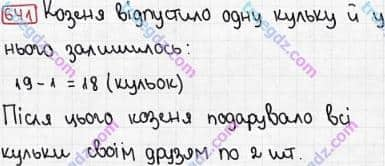 641 Козеня відпустило одну кульку й у
нього залишилось:
19-1=18 (кульок)
Після цього козеня подарувало всі
кульки своїм друзям по 2 шт.